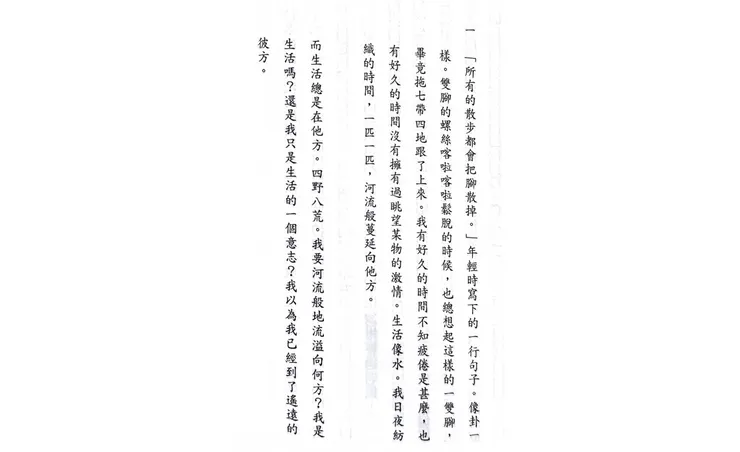 一　「所有的散步都會把腳散掉。」年輕時寫下的一行句子。像卦一
樣。雙腳的螺絲喀啦喀啦鬆脫的時候，也總想起這樣的一雙腳，
畢竟拖七帶四地跟了上來。我有好久的時間不知疲倦是甚麼，也
有好久的時間沒有擁有過眺望某物的激情。生活像水。我日夜紡
織的時間，一匹一匹，河流般蔓延向他方。
而生活總是在他方。四野八荒。我要河流般地流溢向何方？我是
生活嗎？還是我只是生活的一個意志？我以為我已經到了遙遠的
彼方。